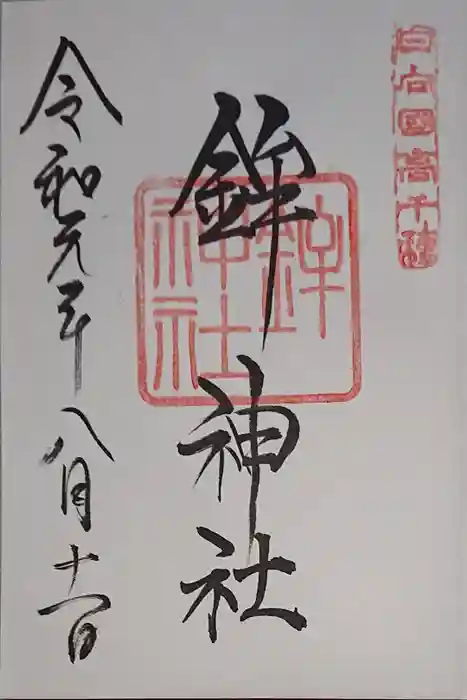 日向國高千穂
鉾神社
鉾神社
令和元年八月十一日